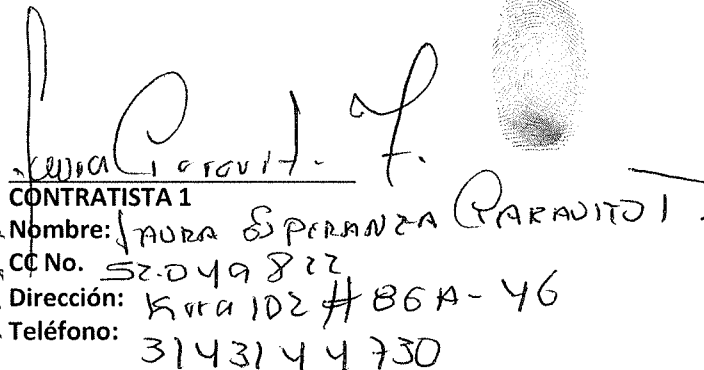 Laura Garavit. T.
CONTRATISTA 1
Nombre: LAURA ESPERANZA GARAVITO T.
CC No. 52.049822
Dirección: Kra 102 # 86A-46
Teléfono: 3143144730